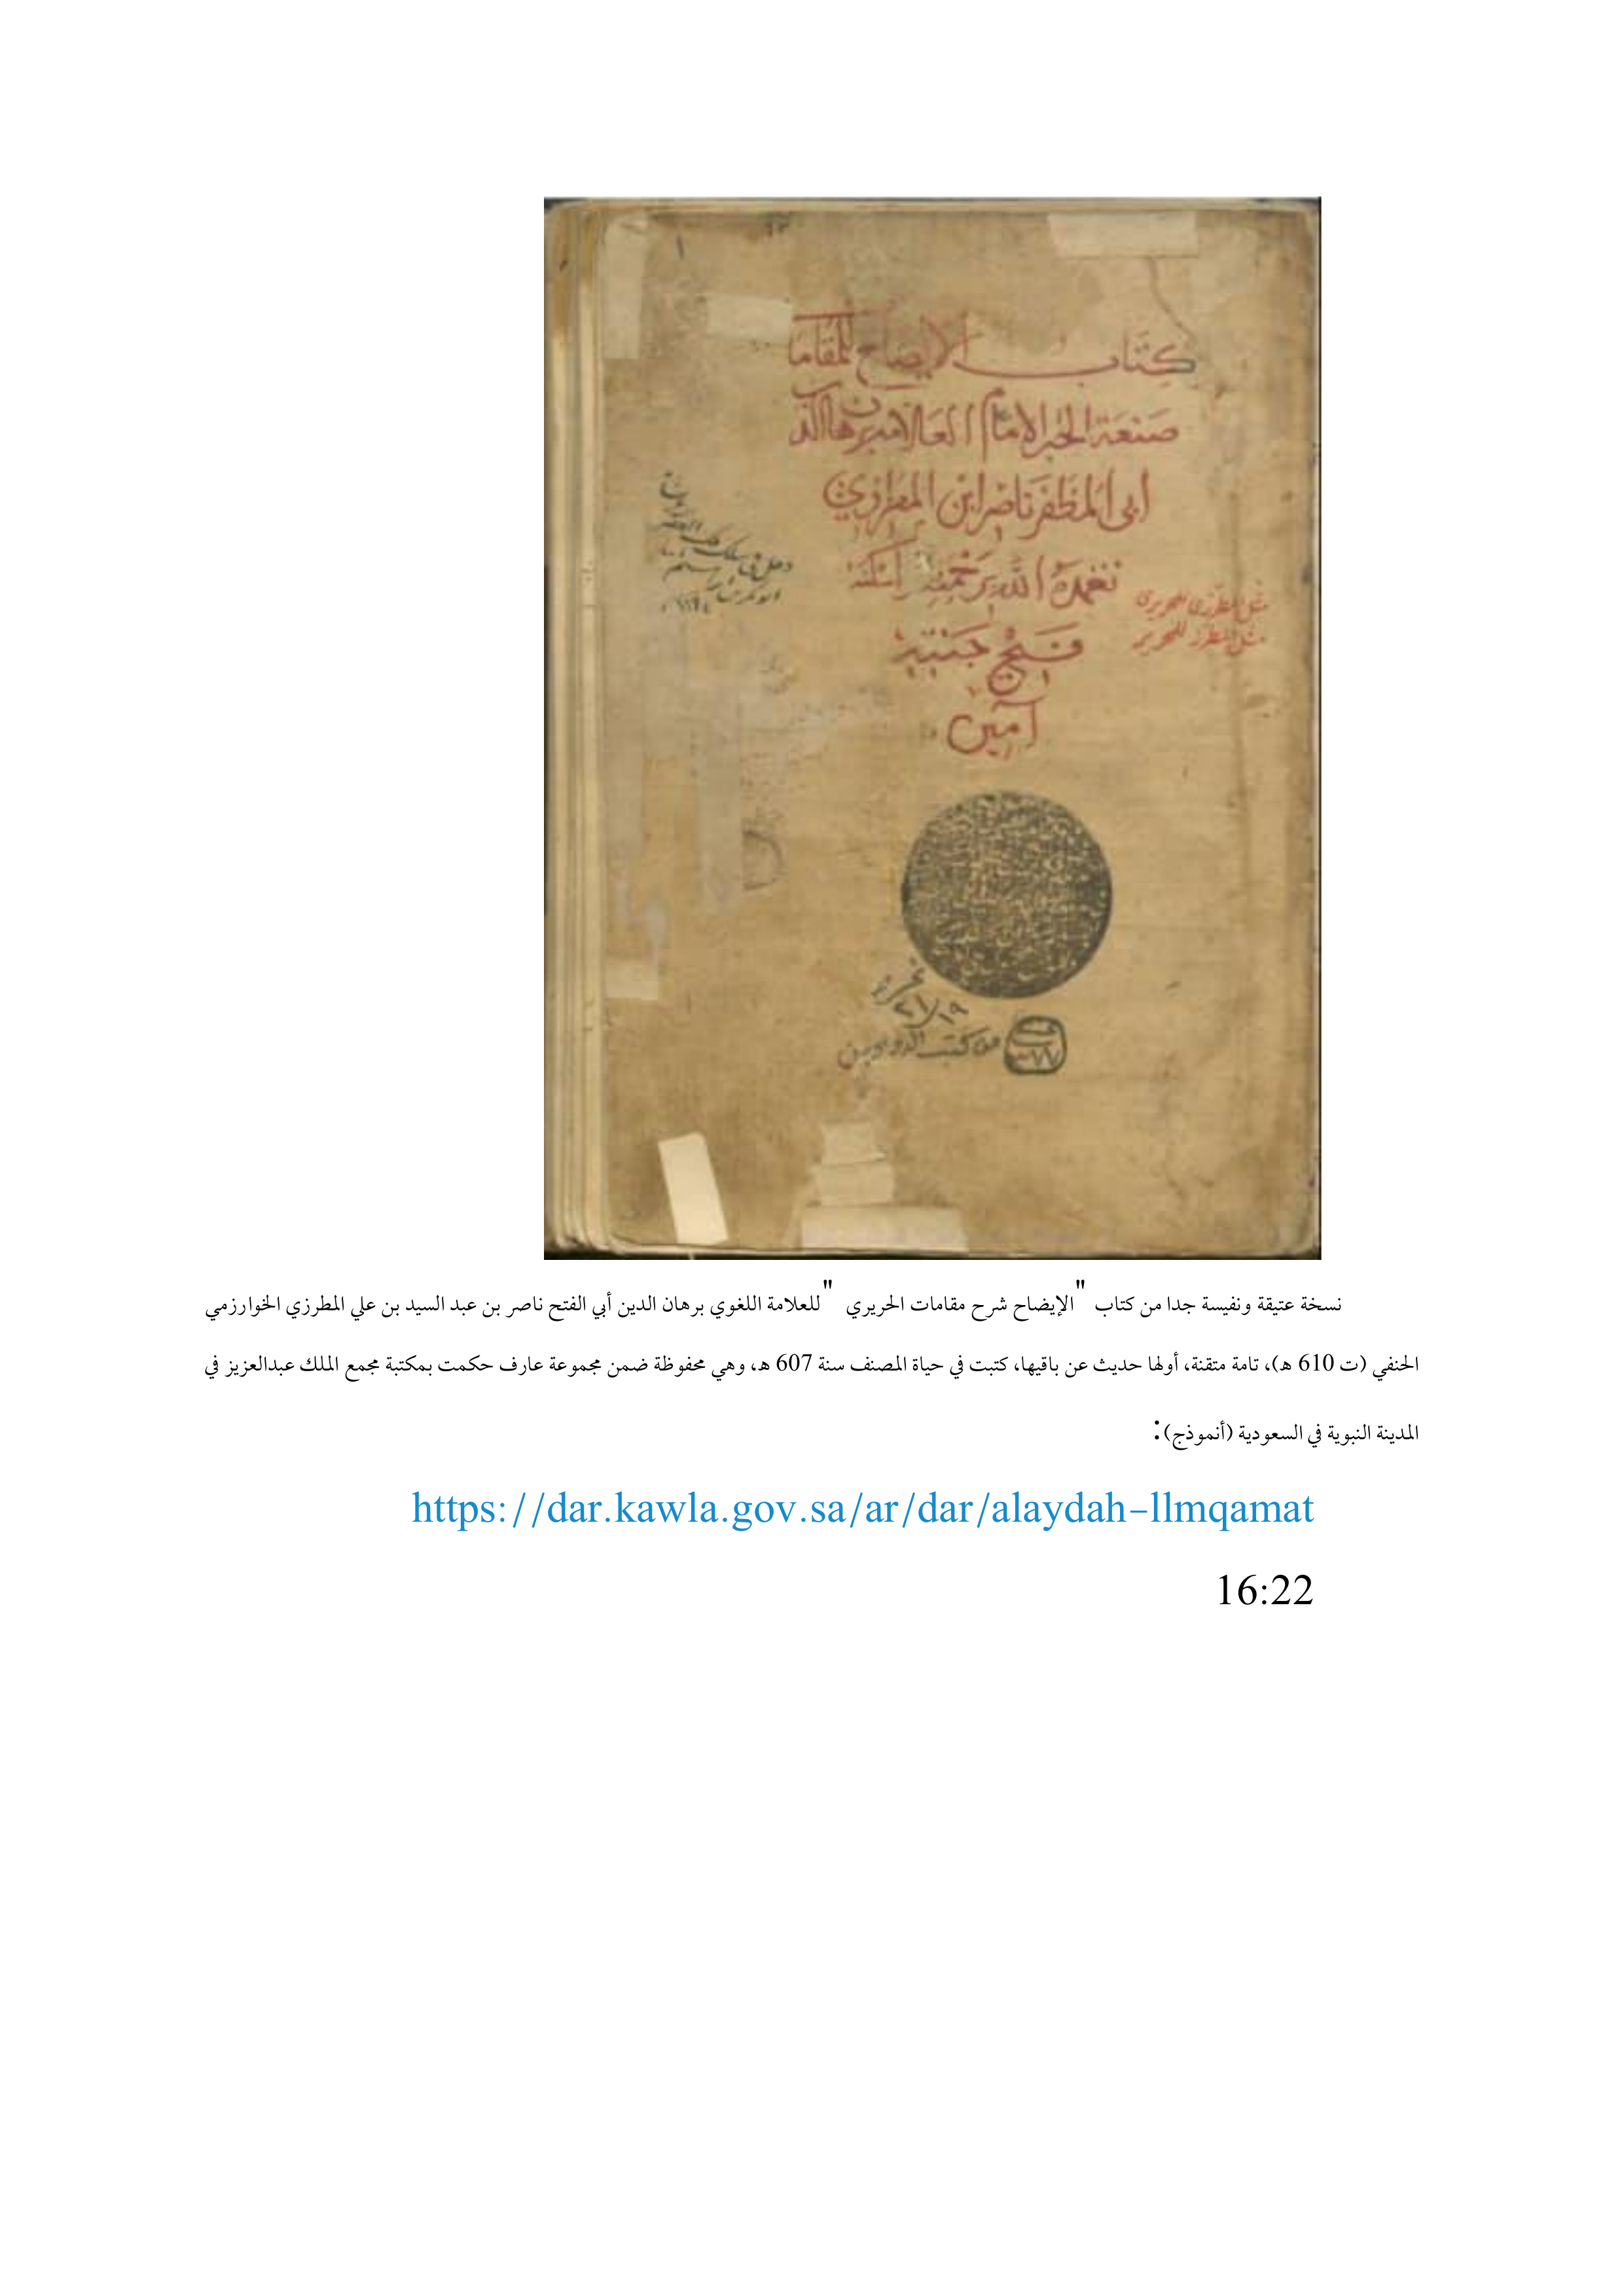 كتاب الايضاح للمقامات
صنعة الحبر الامام العلامة برهان الدين
ابى المظفر ناصر ابن المطرزي
تغمده الله برحمته اسكنه
فسيح جنته
آمين
مثل المطرزى للحريرى
مثل المطرز للحرير
من كتب الدواوين
٣٧٧
نسخة عتيقة ونفيسة جدا من كتاب "الإيضاح شرح مقامات الحريري "للعلامة اللغوي برهان الدين أبي الفتح ناصر بن عبد السيد بن علي المطرزي الخوارزمي
الحنفي (ت 610 هـ)، تامة متقنة، أولها حديث عن باقيها، كتبت في حياة المصنف سنة 607 هـ، وهي محفوظة ضمن مجموعة عارف حكمت بمكتبة مجمع الملك عبدالعزيز في
المدينة النبوية في السعودية (أنموذج):
https://dar.kawla.gov.sa/ar/dar/alaydah-llmqamat
16:22